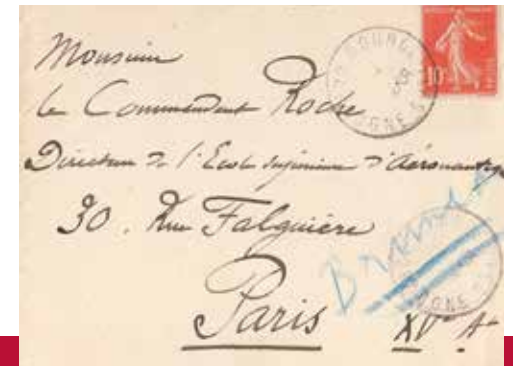 Monsieur
le Commandant Roche
Directeur de l'Ecole supérieure d'Aéronautique
30. Rue Falguière
Paris
XVe Ar
10c